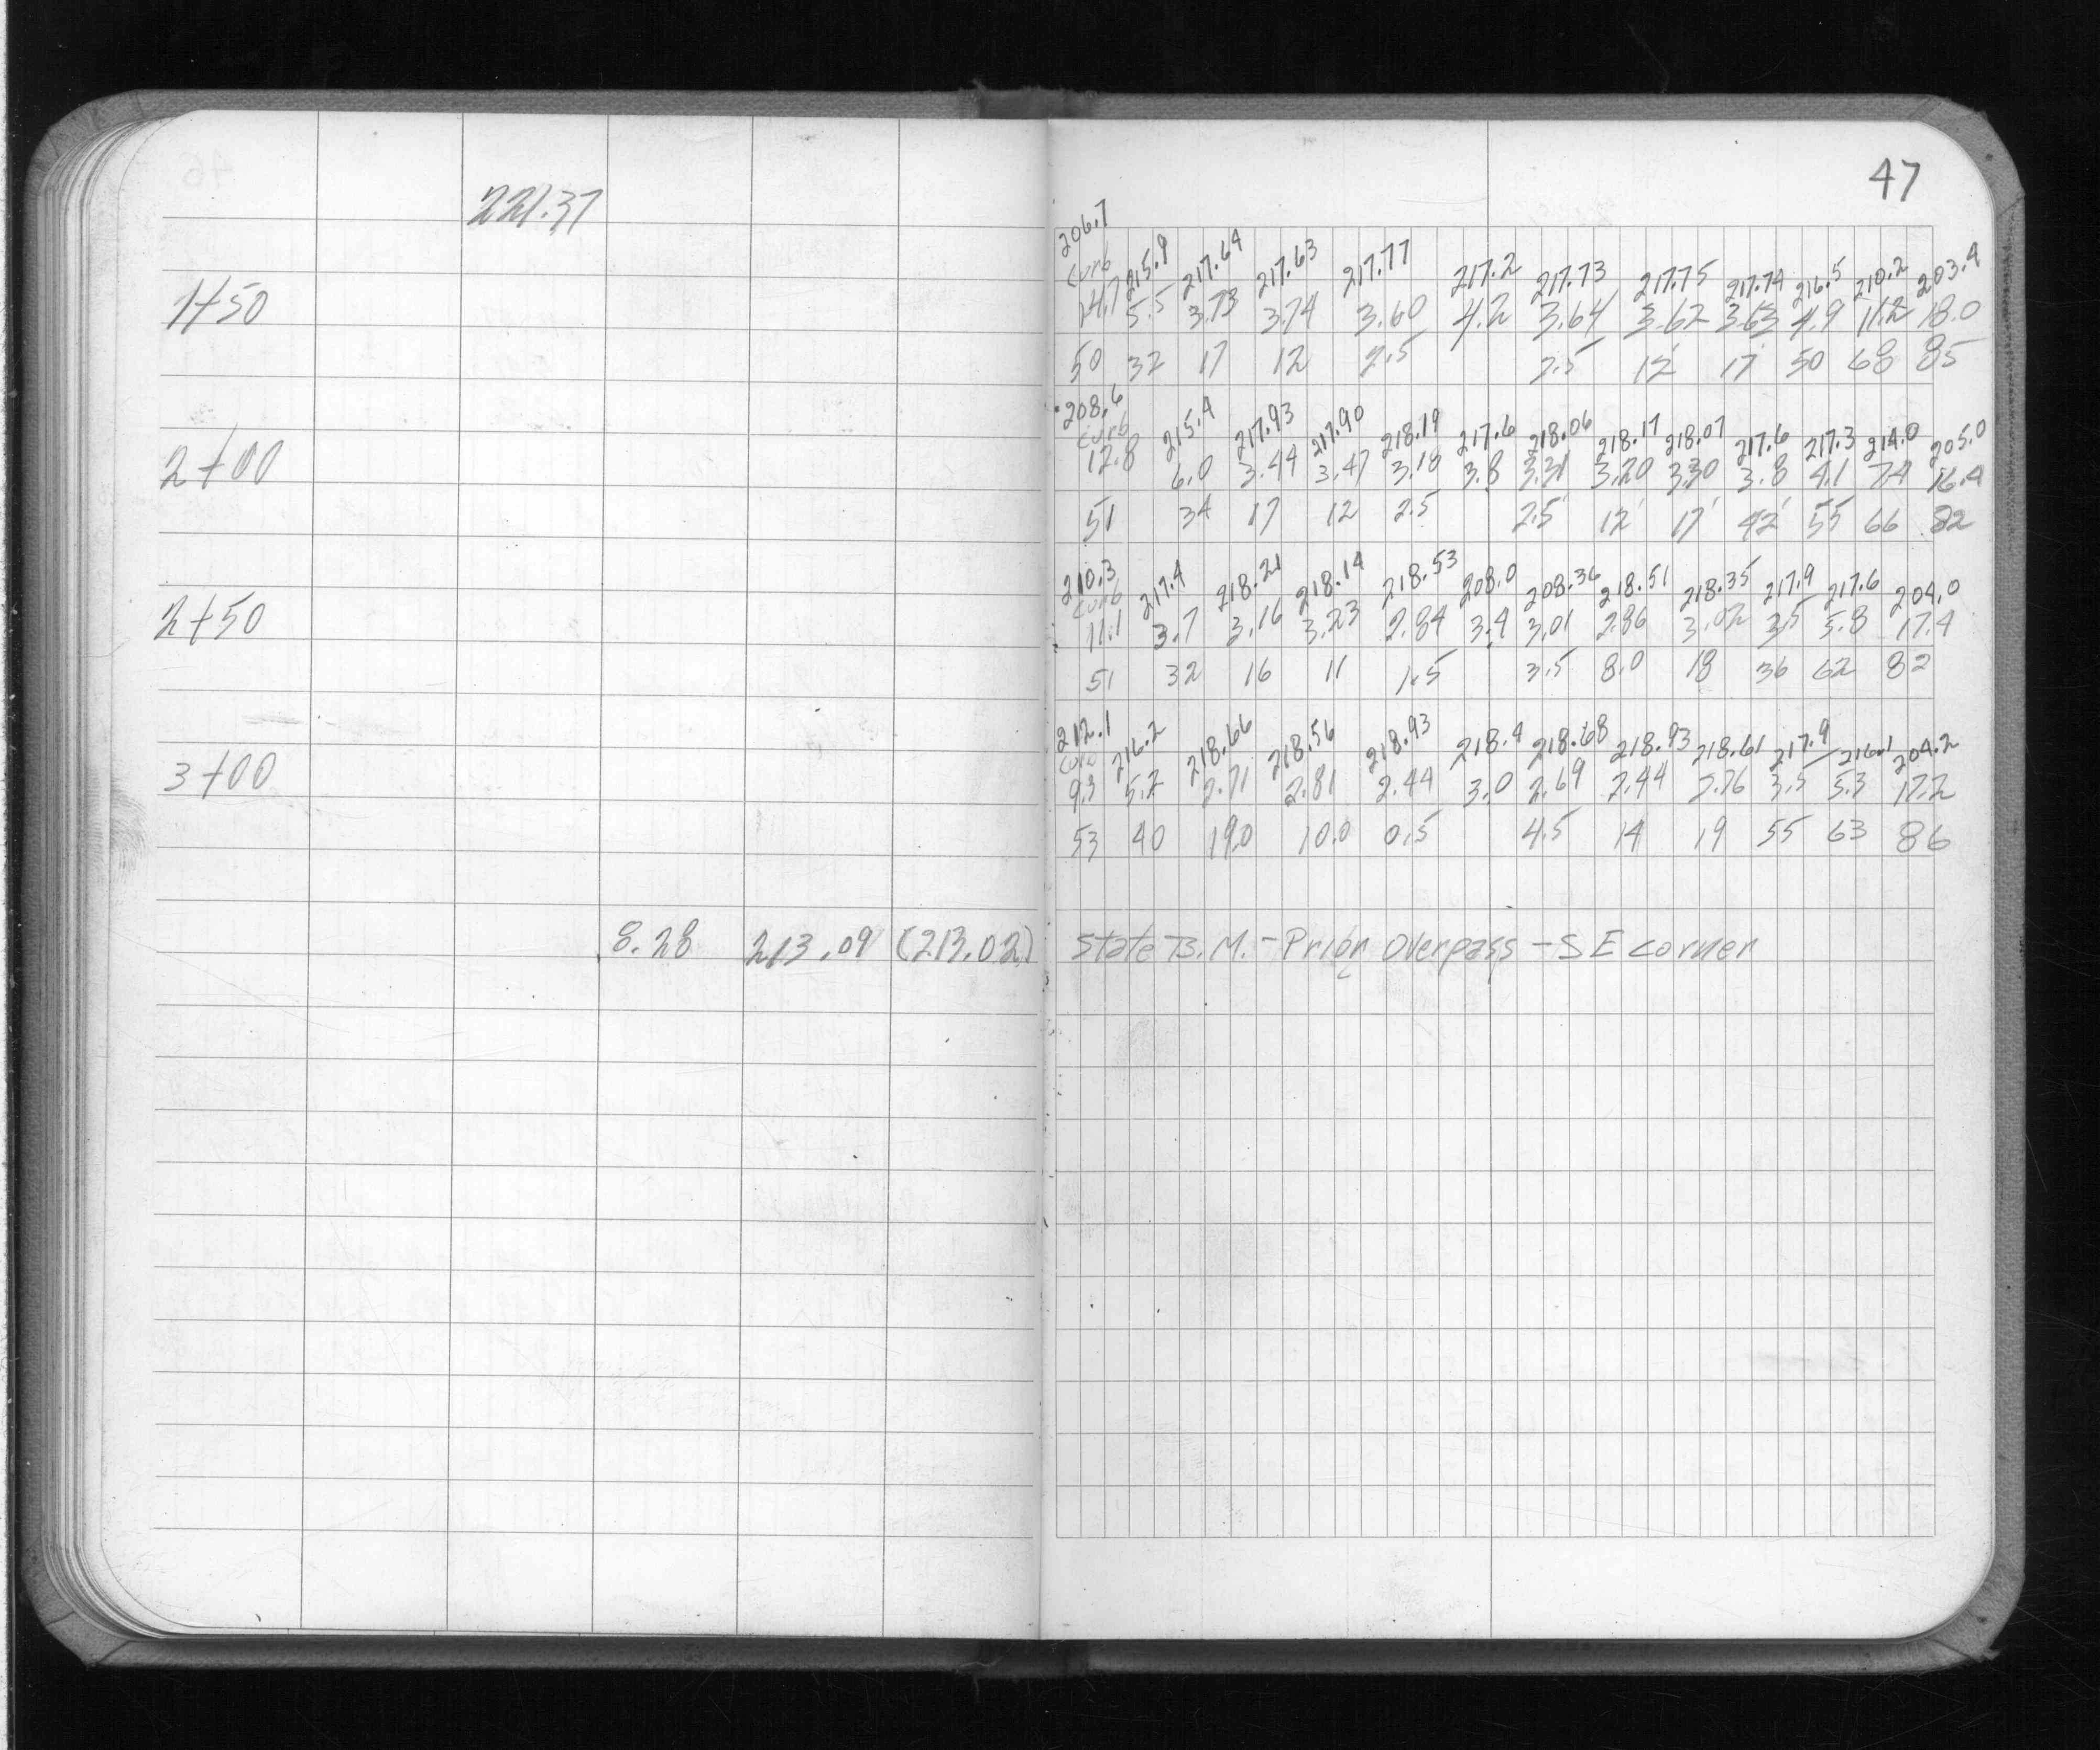 47
221.37
206.7 215.9 217.64 217.63 217.77 217.2 217.73 217.75 217.74 216.5 210.2 203.4
curb
1+50 14.7 5.5 3.73 3.74 3.60 4.2 3.64 3.62 3.63 4.9 11.2 18.0
50 32 17 12 2.5 2.5 12 17 50 68 85
208.6 215.4 217.93 217.90 218.19 217.6 218.06 218.17 218.07 217.6 217.3 214.0 205.0
curb
2+00 12.8 6.0 3.44 3.47 3.18 3.8 3.31 3.20 3.30 3.8 4.1 7.4 16.4
51 34 17 12 2.5 2.5 12 17 42 55 66 82
210.3 217.4 218.21 218.14 218.53 208.0 208.36 218.51 218.35 217.9 217.6 204.0
curb
2+50 11.1 3.7 3.16 3.23 2.84 3.4 3.01 2.86 3.02 3.5 5.8 17.4
51 32 16 11 1.5 3.5 8.0 18 36 62 82
212.1 216.2 218.66 218.56 218.93 218.4 218.68 218.93 218.61 217.9 216.1 204.2
curb
3+00 9.3 5.2 2.71 2.81 2.44 3.0 2.69 2.44 2.76 3.5 5.3 17.2
53 40 19.0 10.0 0.5 4.5 14 19 55 63 86
8.28 213.09 (213.02) State B.M. - Prior Overpass - SE corner